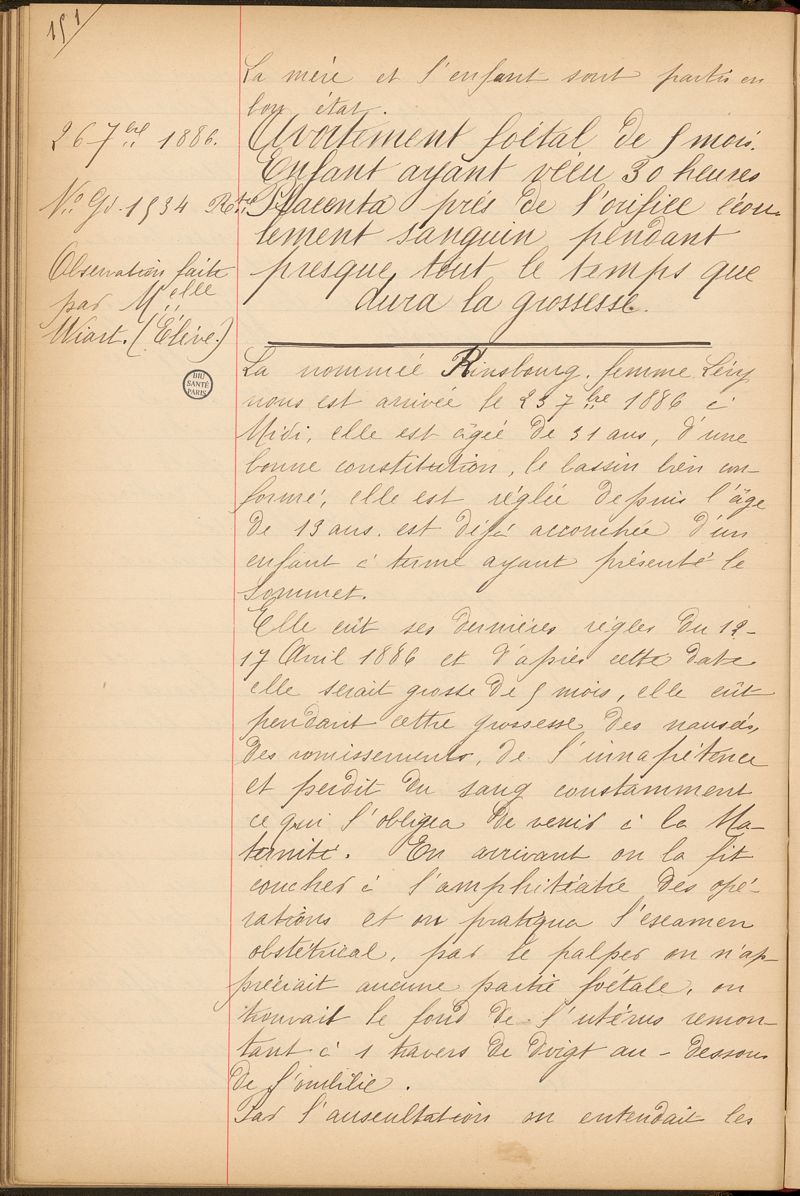 151
La mère et l'enfant sont partis en
bon état.
26 7bre 1886.
Nº Gd. 1934 Rtre
Observation faite
par Melle
Wiart. (Élève.)
Avortement foétal de 5 mois.
Enfant ayant vécu 30 heures
Placenta près de l'orifice écou-
lement sanguin pendant
presque tout le temps que
dura la grossesse.
BIU
SANTÉ
PARIS
La nommée Kinsbourg, femme Lévy
nous est arrivée le 25 7bre 1886 à
Midi, elle est âgée de 31 ans, d'une
bonne constitution, le bassin bien con-
formé, elle est réglée depuis l'âge
de 13 ans. est déjà accouchée d'un
enfant à terme ayant présenté le
sommet.
Elle eût ses dernières règles du 12-
17 Avril 1886 et d'après cette date
elle serait grosse de 5 mois, elle eût
pendant cette grossesse des nausées,
des vomissements, de l'innapétence
et perdit du sang constamment
ce qui l'obligea de venir à la Ma-
ternité. En arrivant on la fit
coucher à l'amphitéatre des opé-
rations et on pratiqua l'examen
obstétrical, par le palper on n'ap-
préciait aucune partie foétale, on
trouvait le fond de l'utérus remon-
tant à 1 travers de doigt au-dessous
de l'ombilic.
Par l'auscultation on entendait les